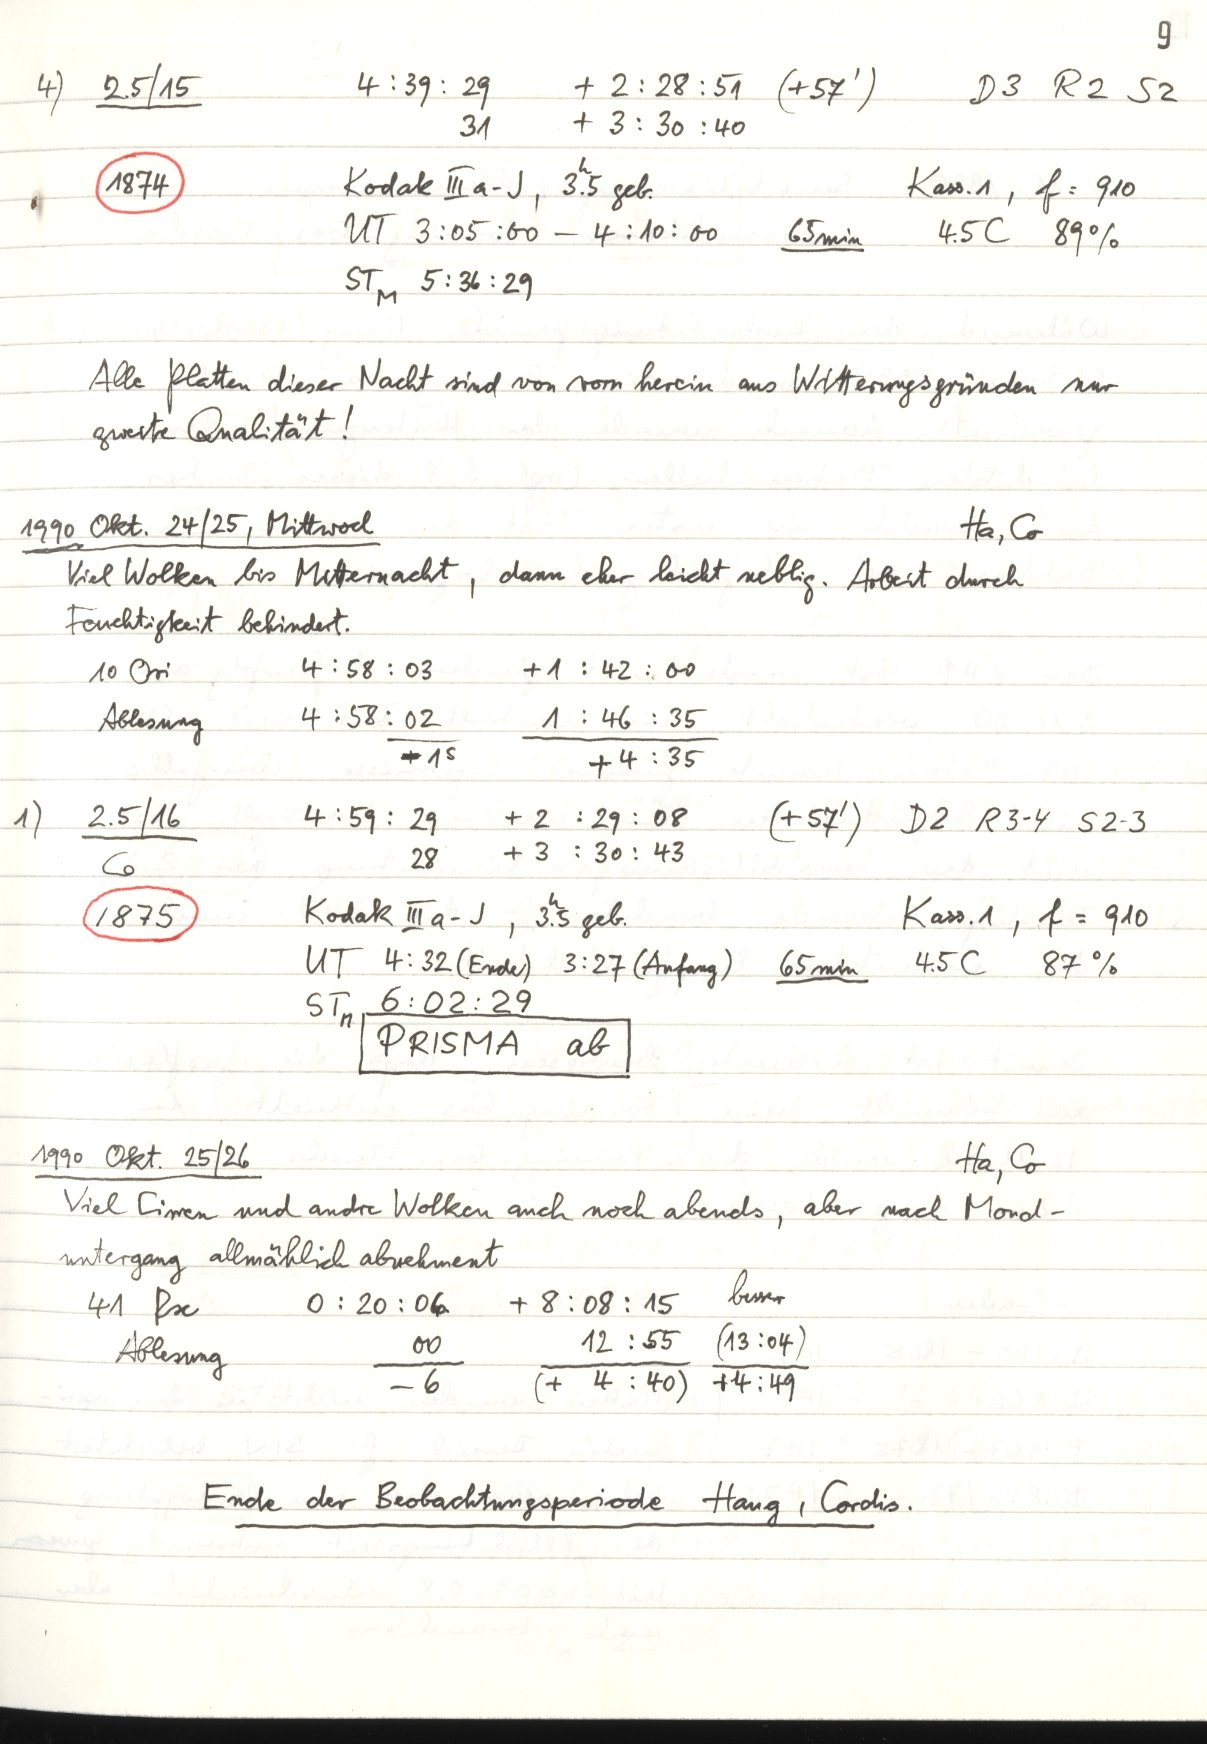 9
4) 2.5/15 4:39:29 + 2:28:51 (+57') D3 R2 S2
31 + 3:30:40
1874 Kodak IIIa-J, 3.5h geb. Kass.1, f = 910
UT 3:05:00 – 4:10:00 65min 4.5C 89%
STM 5:36:29
Alle Platten dieser Nacht sind von vorn herein aus Witterungsgründen nur
zweite Qualität!
1990 Okt. 24/25, Mittwoch Ha, Co
Viel Wolken bis Mitternacht, dann eher leicht neblig. Arbeit durch
Feuchtigkeit behindert.
10 Ori 4:58:03 +1:42:00
Ablesung 4:58:02 1:46:35
1s +4:35
1) 2.5/16 4:59:29 +2:29:08 (+57') D2 R3-4 S2-3
Co 28 +3:30:43
1875 Kodak IIIa-J, 3.5h geb. Kass.1, f = 910
UT 4:32 (Ende) 3:27 (Anfang) 65min 4.5C 87%
STM 6:02:29
PRISMA ab
1990 Okt. 25/26 Ha, Co
Viel Cirren und andre Wolken auch noch abends, aber nach Mond-
untergang allmählich abnehment
41 Psc 0:20:06 +8:08:15 besser
Ablesung 00 12:55 (13:04)
–6 (+ 4:40) +4:49
Ende der Beobachtungsperiode Haug, Cordis.